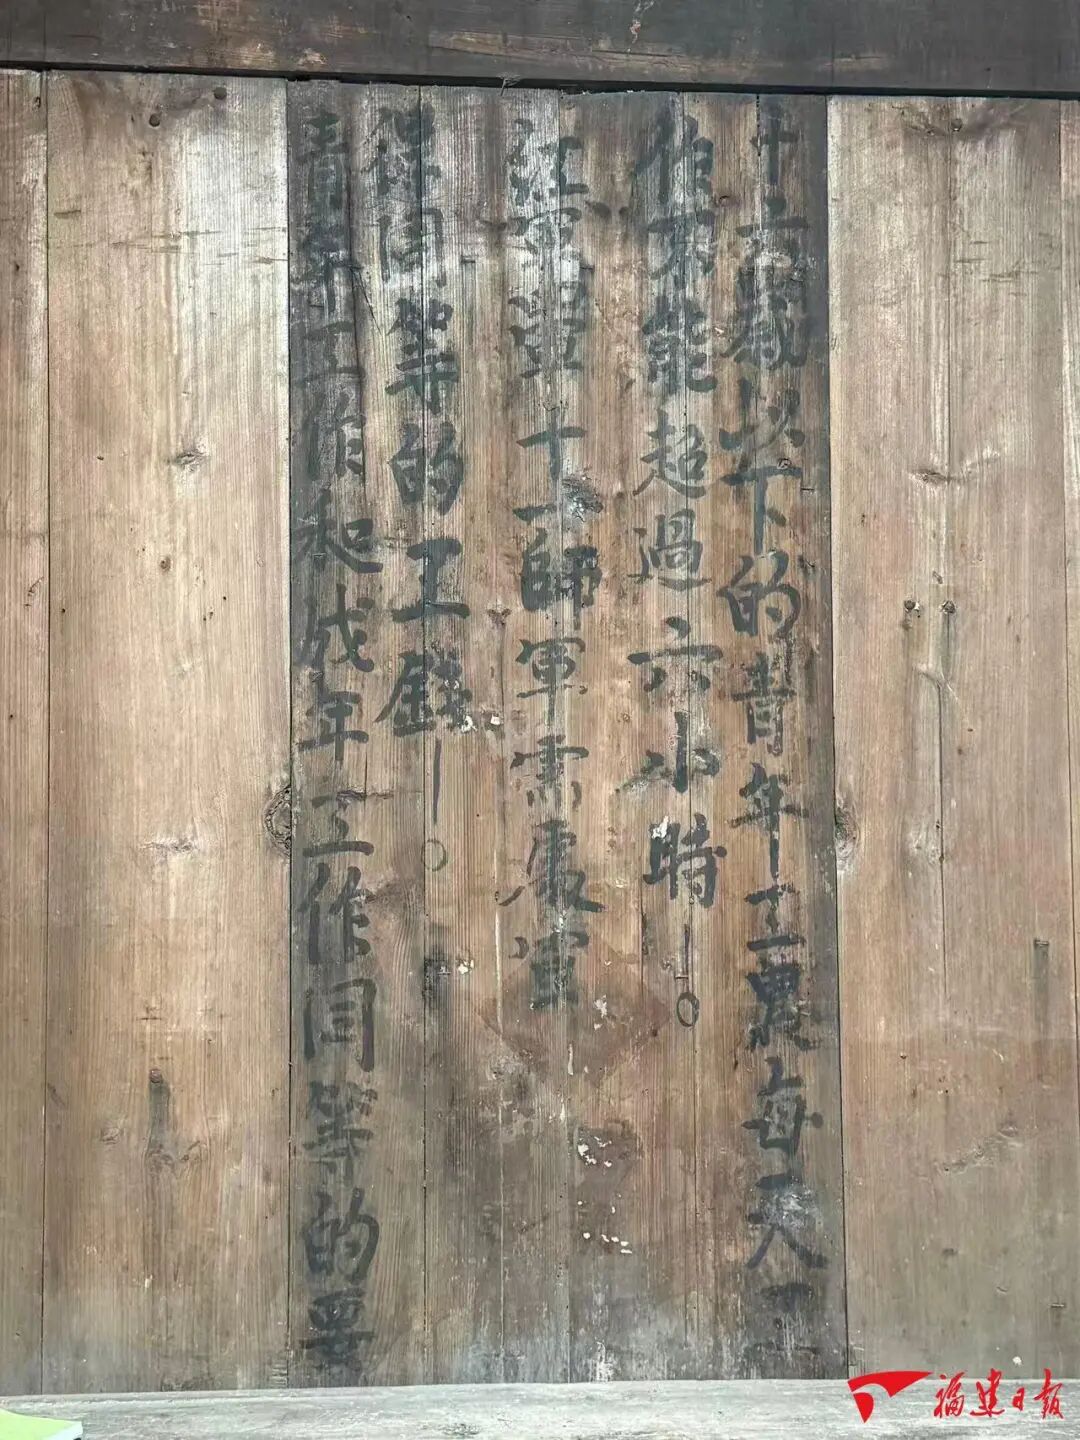 十六歲以下的青年工農每天工
作不能超過六小時！。
紅軍十一師軍需處宣
同等的工錢！。
青年工作和成年工作同等的要
福建日报